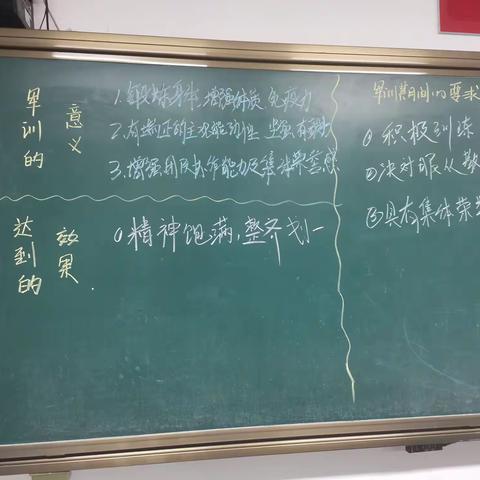 早训的
意义
1.锻炼身体,增强体质 免疫力
2.有端正的主观能动性 坚强有毅力
3.增强团队协作能力及集体荣誉感
达到的
效果.
①精神饱满,整齐划一
早训期间的要求
①积极训练
②决对服从教
③具有集体荣誉